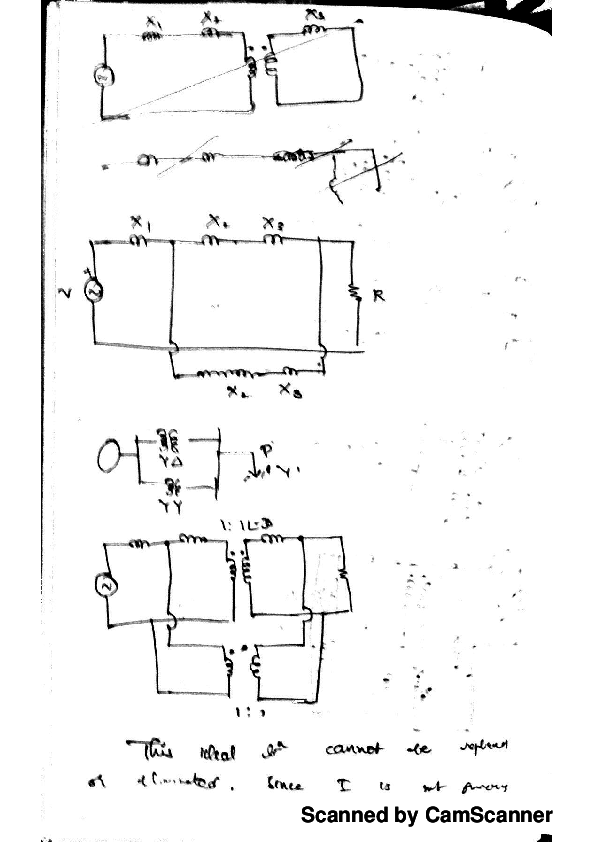 X₁ X₂ X₃
X₁ X₂ X₃
V R
X₂ X₃
P
Y Δ Y
Y Y
1:1
1:1
This ideal cannot be
or eliminated. Since I is not
Scanned by CamScanner